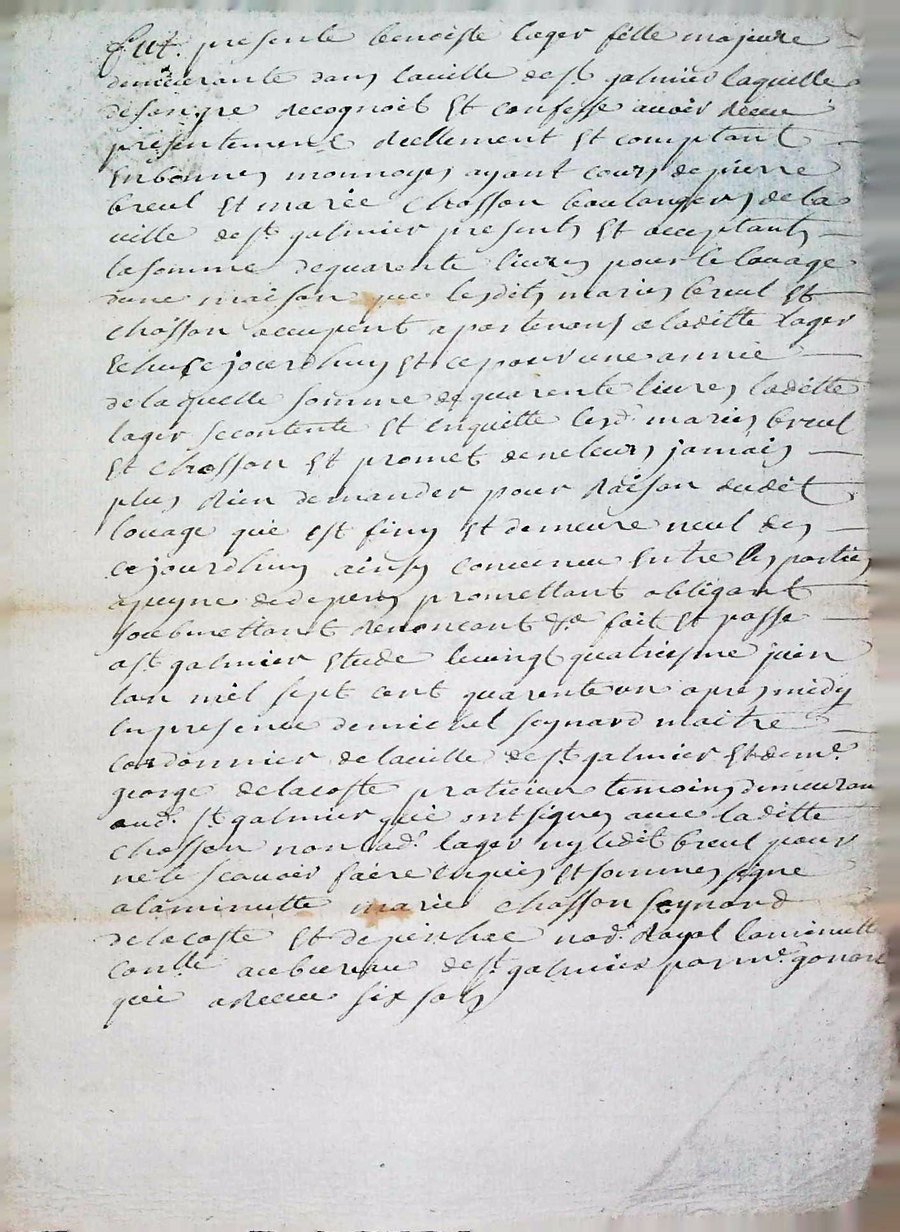 Fut presente benoiste lager fille majeure
demeurante dans laville de st galmier laquelle
desongre recognoit Et confesse avoir Receu
presentement Reellement Et comptant
Enbonnes monnoyes ayant cours de pierre
breul Et marie Chosson boulangers de la
ville de st galmier presents Et acceptants
la somme dequarente livres pour le louage
dune maison que lesdits maries breul Et
Chosson occupent apartenant a laditte Lager
Echu cejourdhuy Et ce pour une année
de laquelle somme de quarente livres laditte
lager secontente Et enquitte lesd. maries breul
Et Chosson Et promet deneleurs jamais
plus Rien demander pour Raison dudit
louage que est finy Et demeure nul des
cejourdhuy ainsy convenu Entre les parties
apeyne dedepens promettant obligant
soubmettant Renoncant &a fait Et passé
a st galmier Etude levingt quatriesme juin
lan mil sept cent quarente un apres midy
En presence demichel seynard maitre
Cordonnier de laville de st galmier Et de me.
george delacoste praticien temoins demeurant
aud. st galmier que ont signes avec laditte
Chosson non lad. lager ny ledit breul pour
ne le scavoir faire Enquis Et sommes signé
alaminutte marie Chosson seynard
delacoste Et Royal laminutte
conllé aubureau de st galmier par me. gonon
qui a Receu six sols